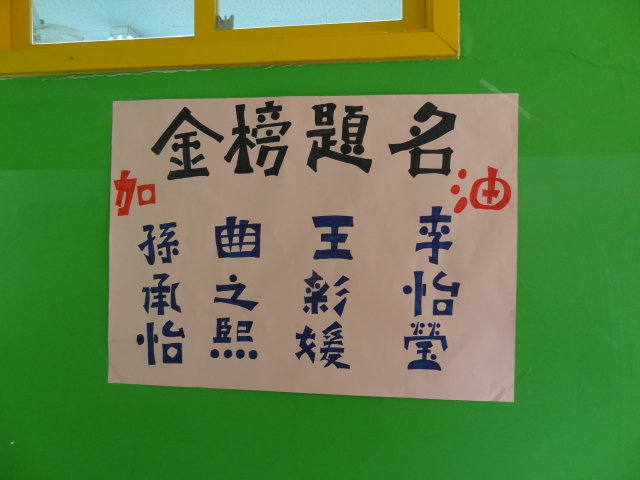 金榜題名
加油
孫承怡
曲之熙
王彩媛
李怡瑩